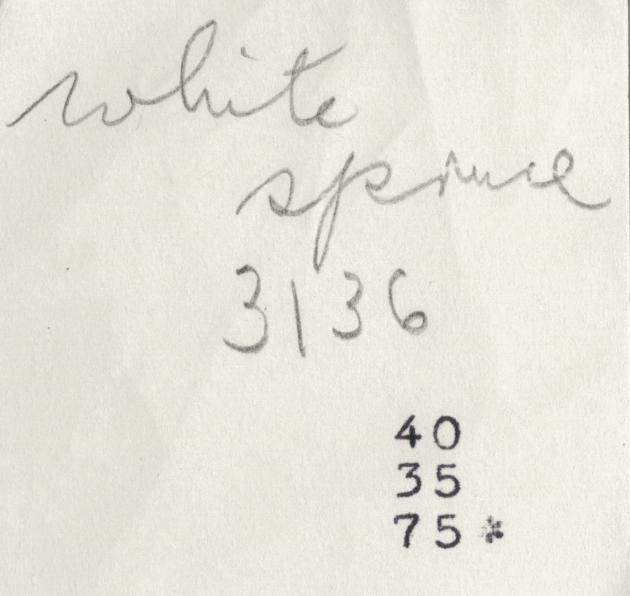 white
spruce
3136
40
35
75*